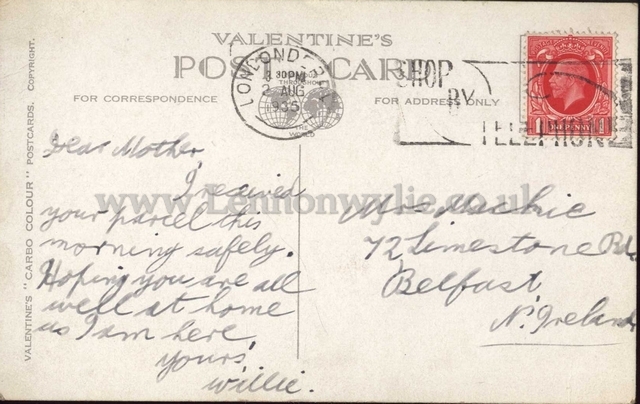 VALENTINE'S
POST CARD
FOR CORRESPONDENCE
FOR ADDRESS ONLY
VALENTINE'S "CARBO COLOUR" POSTCARDS. COPYRIGHT.
LONDONDERRY
30 PM
2 AUG
1935
THROUGHOUT
THE
WORLD
SHOP
BY
TELEPHONE
1 ONE PENNY 1
www.Lennonwylie.co.uk
Dear Mother,
I received
your parcel this
morning safely.
Hoping you are all
well at home
as I am here.
yours,
Willie.
Mrs Mackie
72 Limestone Rd
Belfast
N. Ireland